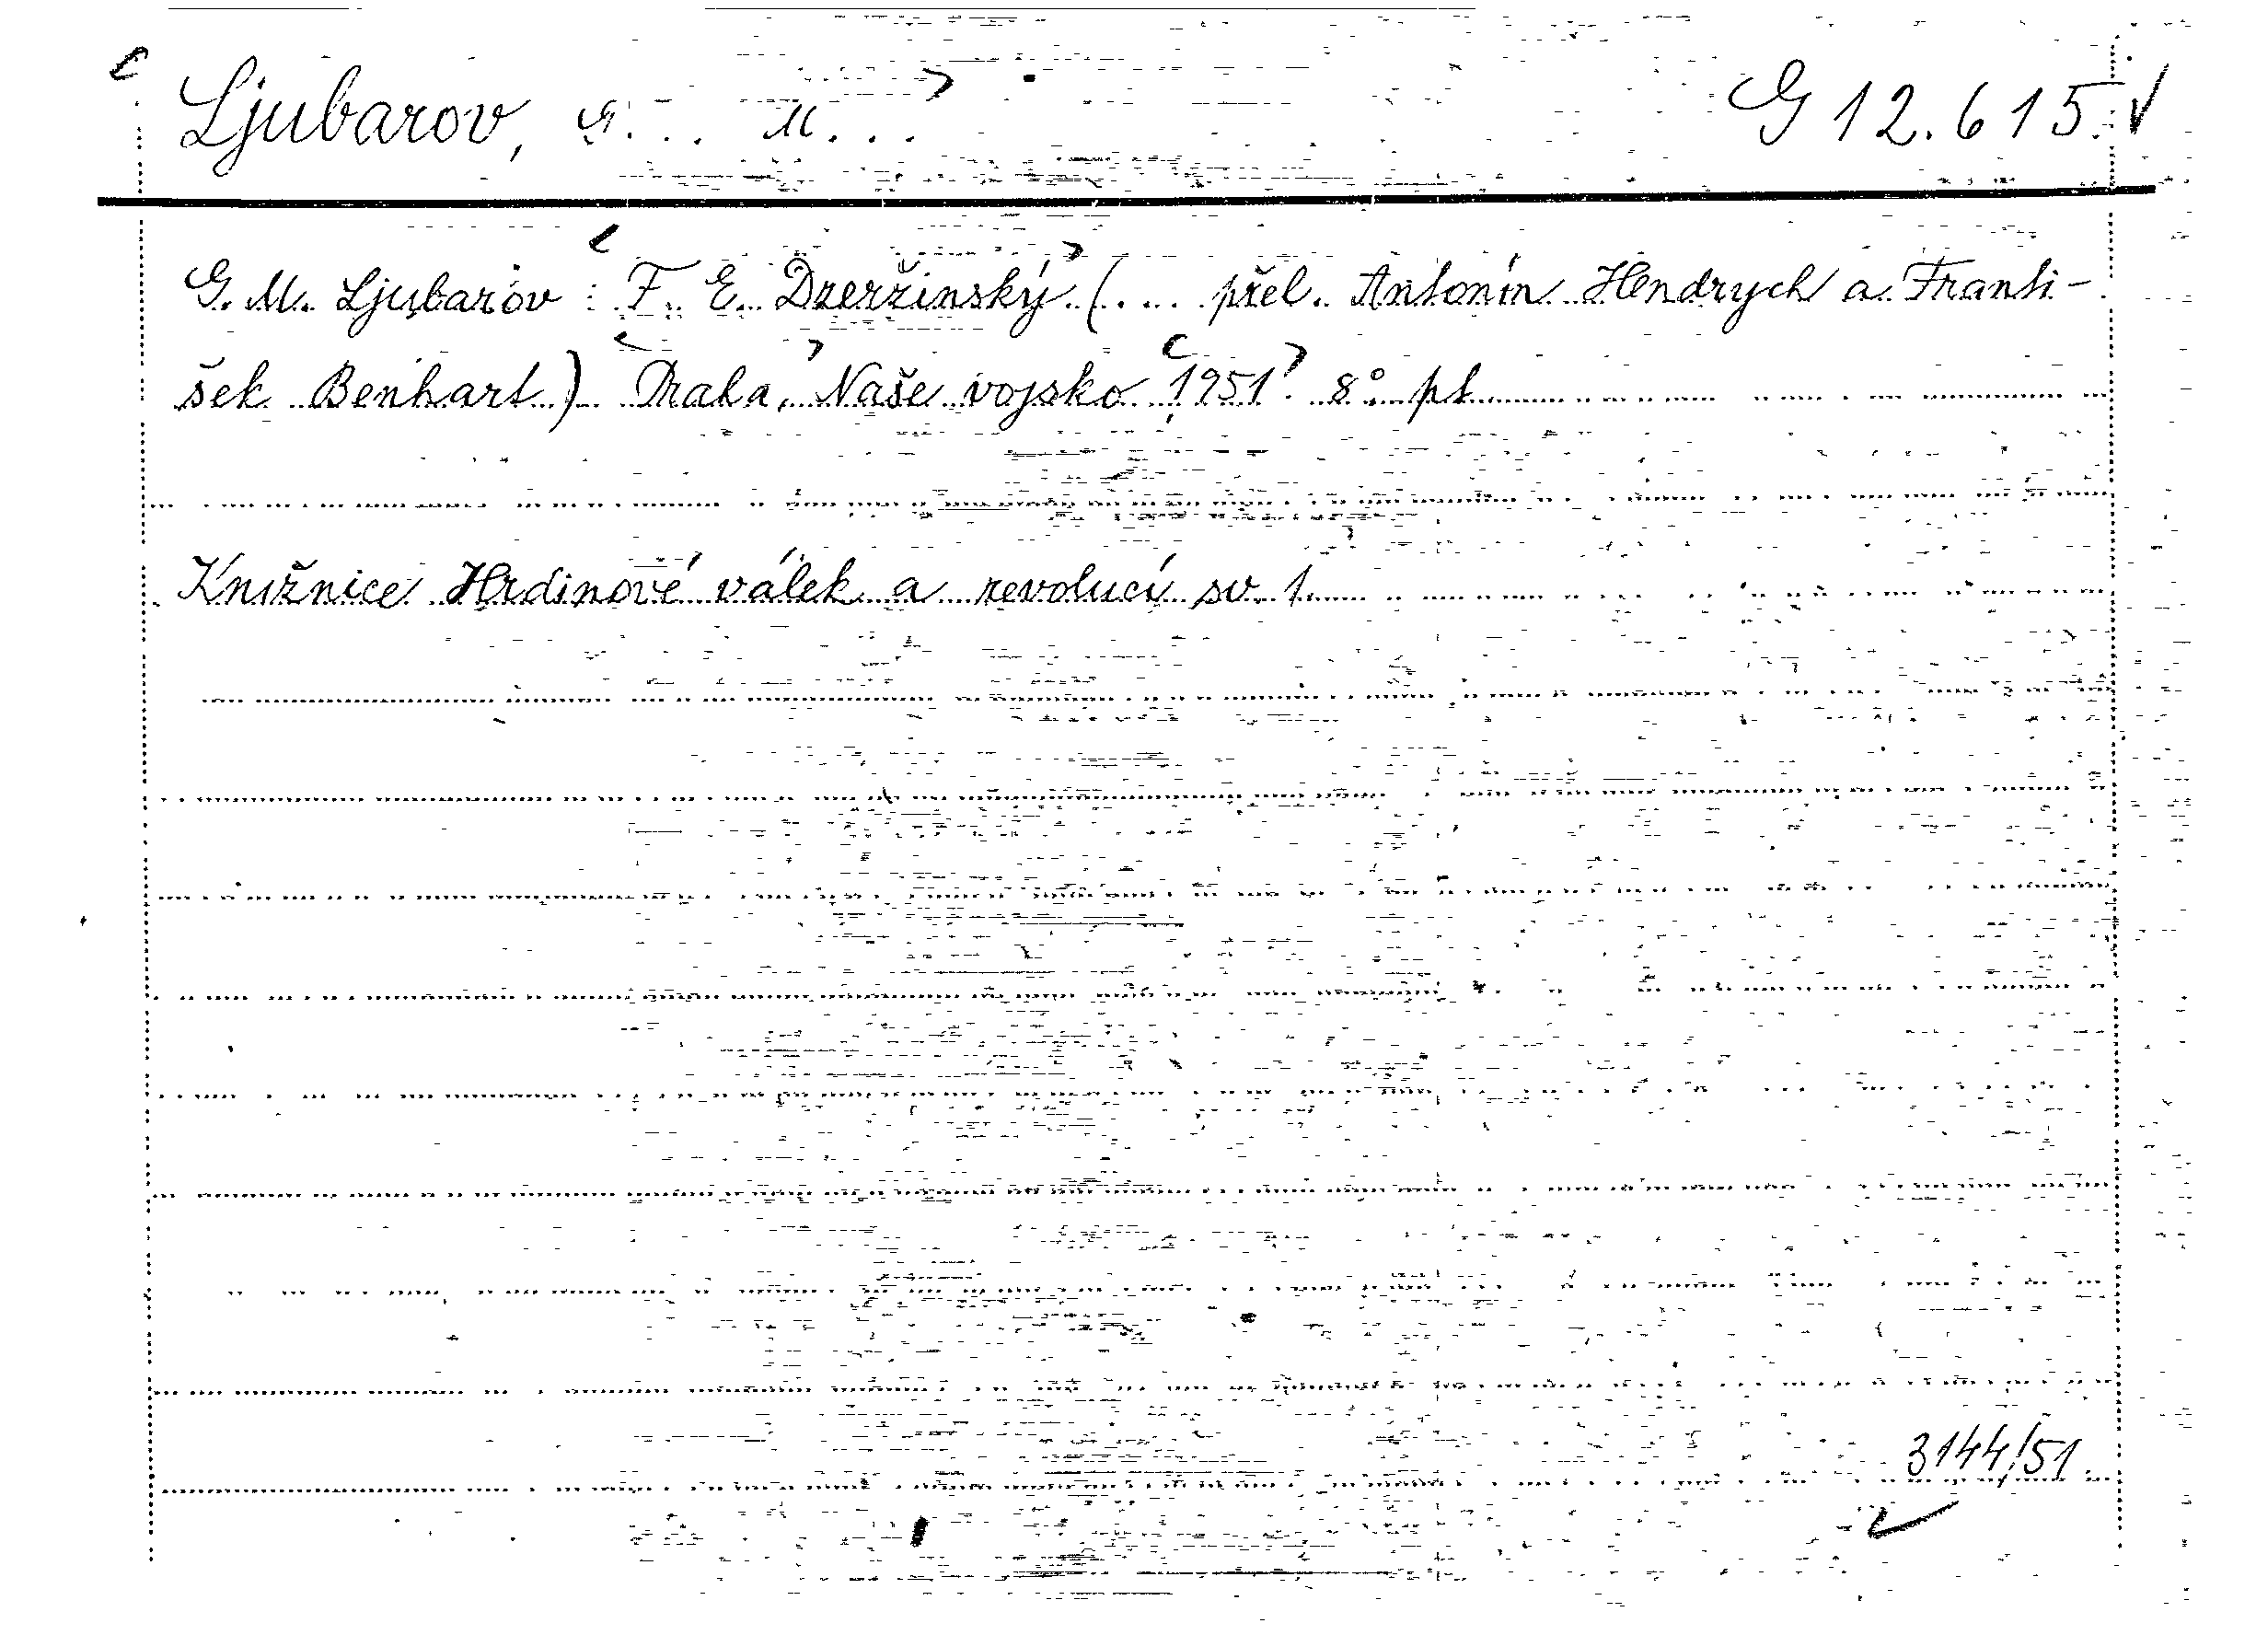 Ljubarov, G... M... G 12.615
G. M. Ljubarov : F. E. Dzeržinský (.... přel. Antonín Hendrych a Franti-
šek Benhart) Praha, Naše vojsko 1951. 8° pt
Knižnice Hrdinové válek a revolucí sv. 1.
3144/51